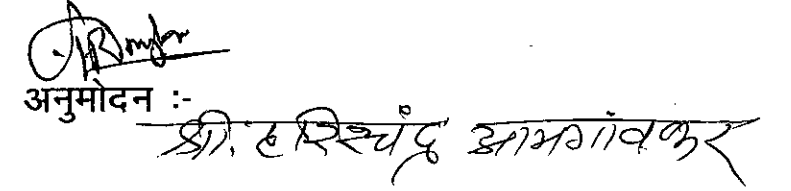 अनुमोदन :-
श्री. हरिश्चंद्र आमगांवकर